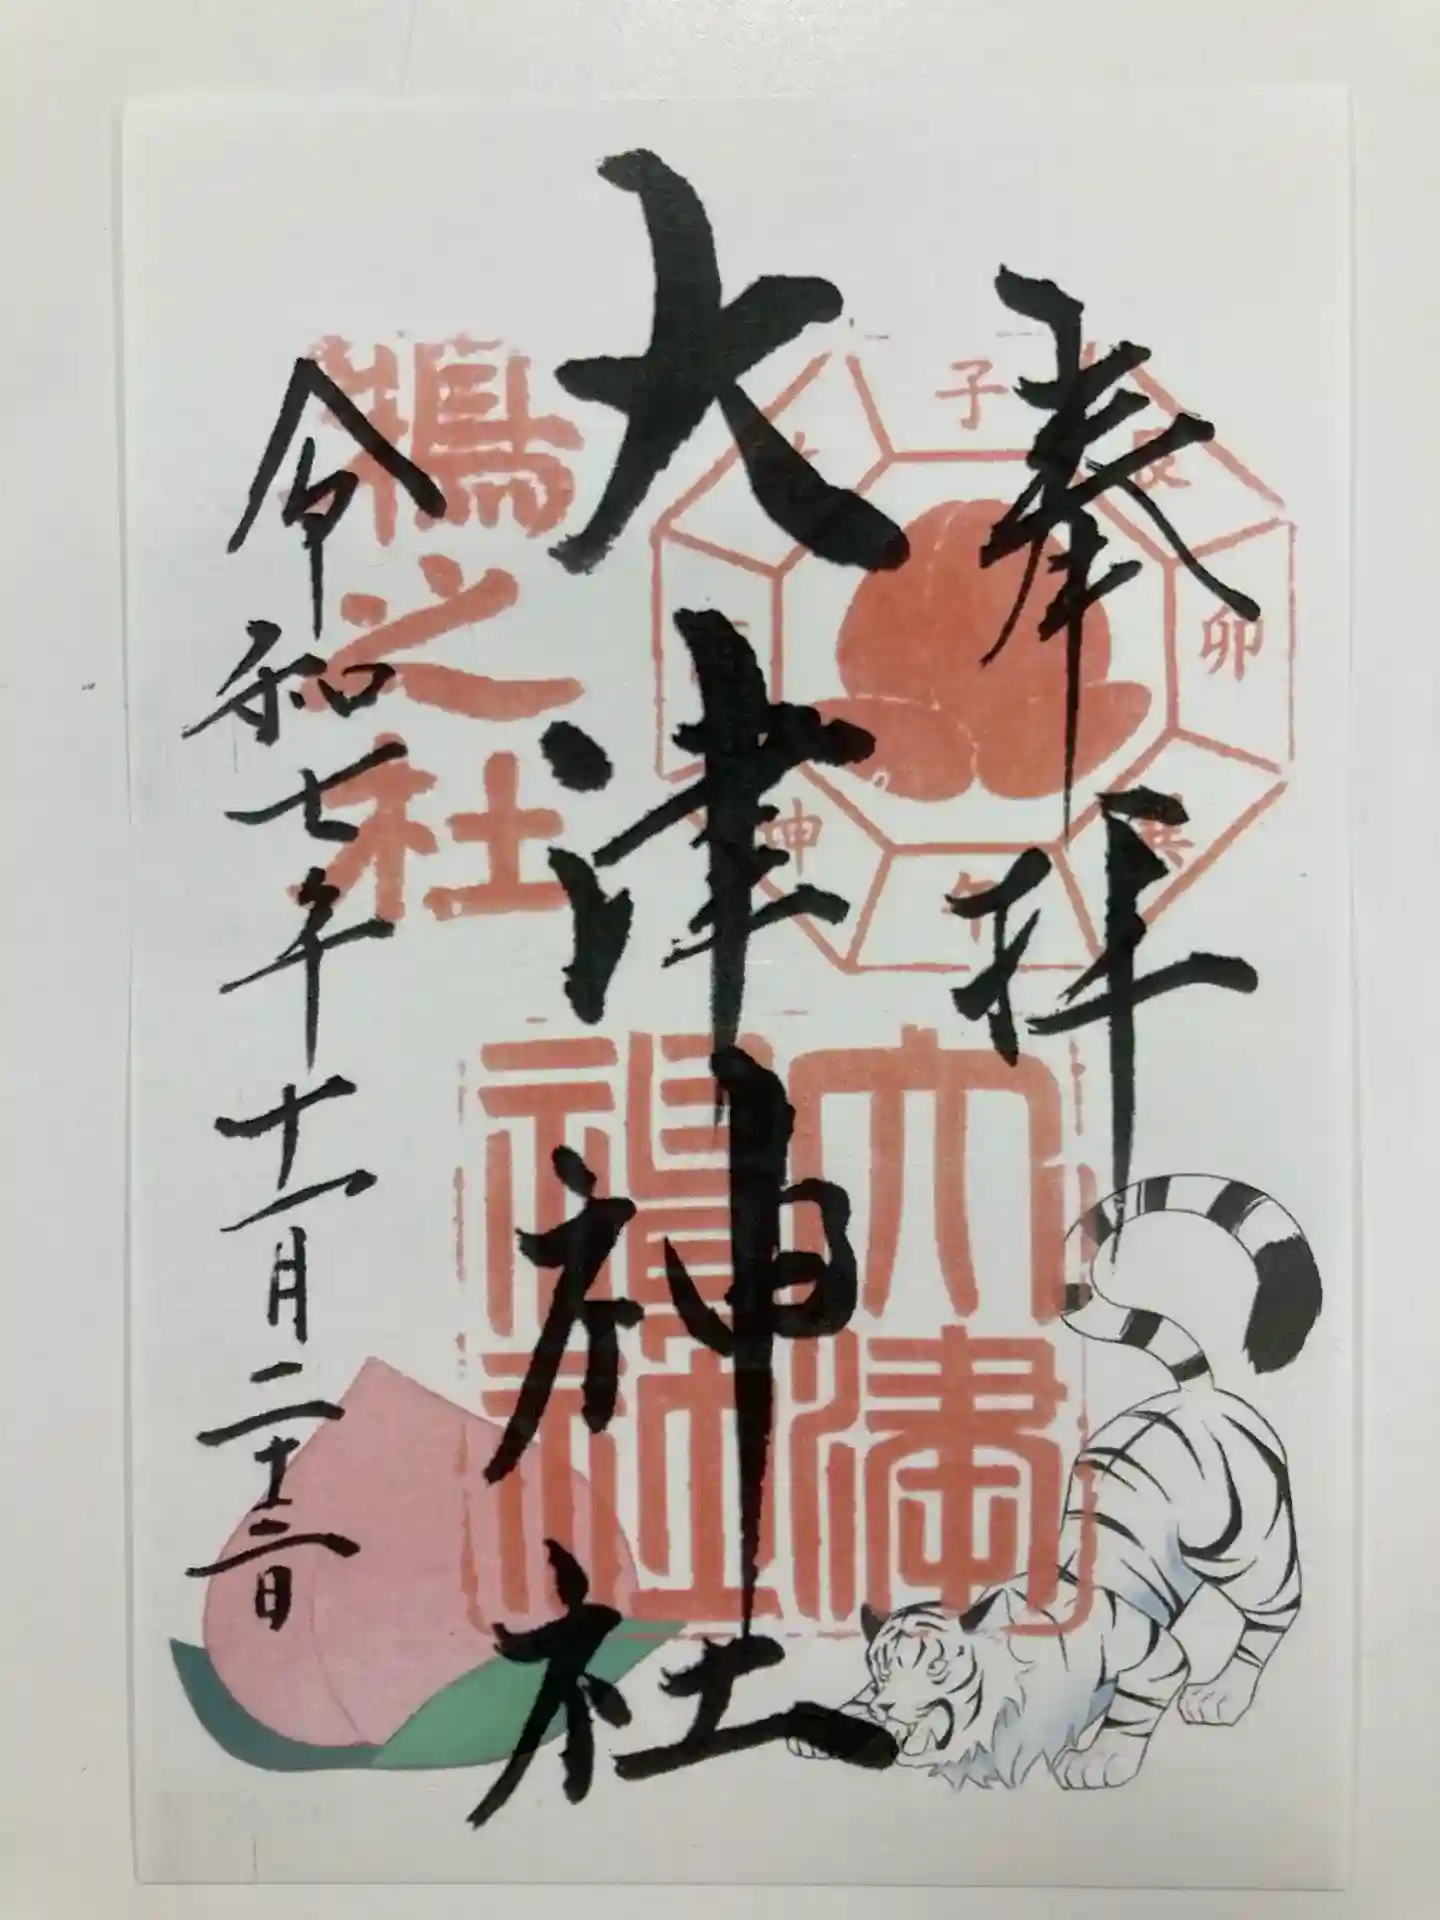 奉拝
大津神社
令和七年十一月二十三日
子
艮
卯
巽
午
坤
之社
大津
神社